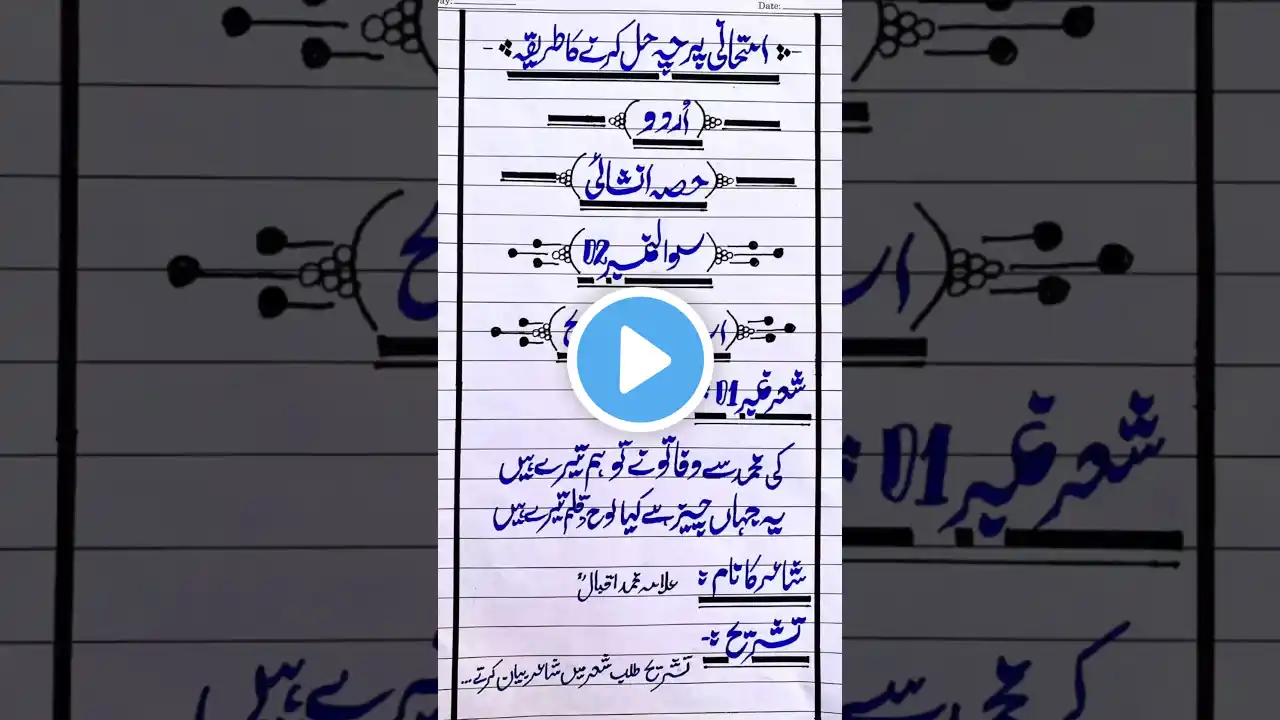 Date:
امتحانی پرچہ حل کرنے کا طریقہ
(اُردو)
(حصہ انشائی)
(سوالنمبر 02)
شعر نمبر 01:
کی محمد سے وفا تو نے تو ہم تیرے ہیں
یہ جہاں چیز ہے کیا لوح و قلم تیرے ہیں
شاعر کا نام: علامہ محمد اقبالؒ
تشریح:-
تشریح طلب شعر میں شاعر بیان کرتے...